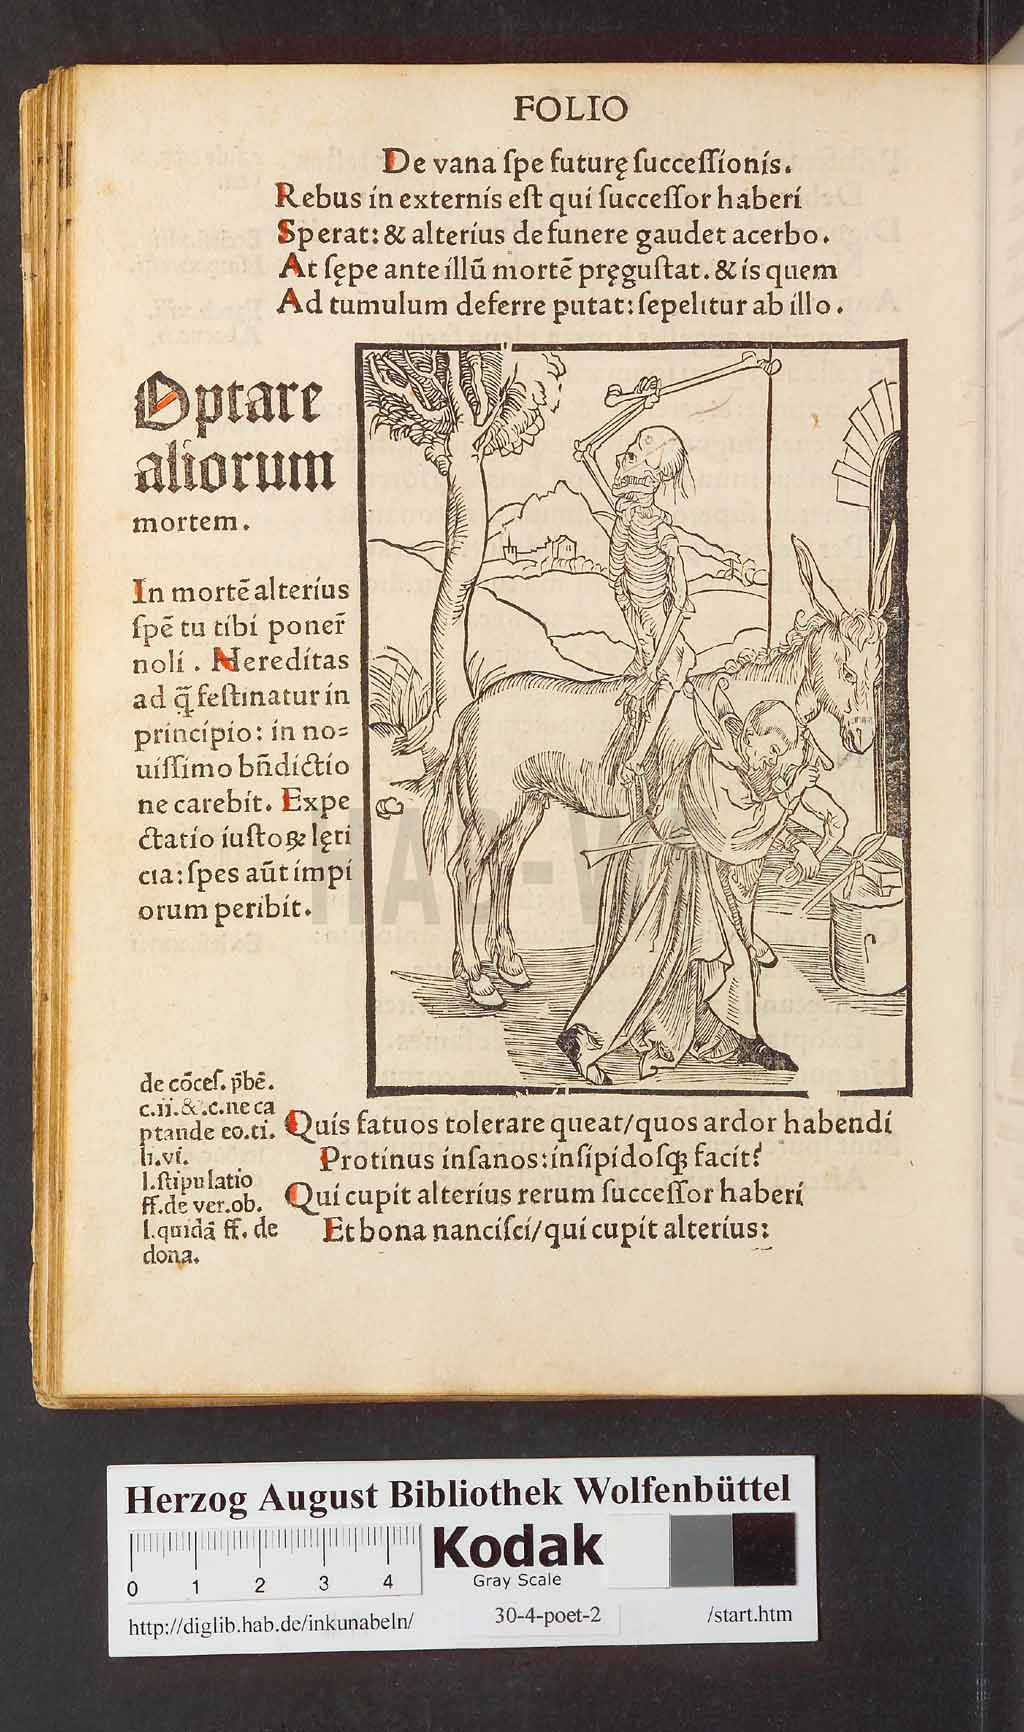 FOLIO
De vana ſpe futurę ſucceſſionis.
Rebus in externis eſt qui ſucceſſor haberi
Sperat: & alterius de funere gaudet acerbo.
At ſępe ante illū mortē pręguſtat. & is quem
Ad tumulum deferre putat: ſepelitur ab illo.
Optare
aliorum
mortem.
In mortē alterius
ſpē tu tibi poner̄
noli. Hereditas
ad q̄ feſtinatur in
principio: in no=
uiſſimo bn̄dictio
ne carebit. Expe
ctatio iuſtoꝝ lęti
cia: ſpes aūt impi
orum peribit.
de cōceſ. p̄bē.
c.ii.&.c.ne ca
ptande eo.ti.
li.vi.
l.ſtipulatio
ff.de ver.ob.
l.quidā ff. de
dona.
Quis fatuos tolerare queat/quos ardor habendi
Protinus inſanos: inſipidoſqꝫ facit?
Qui cupit alterius rerum ſucceſſor haberi
Et bona nanciſci/qui cupit alterius:
HAB-W
Herzog August Bibliothek Wolfenbüttel
0 1 2 3 4
Kodak
Gray Scale
http://diglib.hab.de/inkunabeln/ 30-4-poet-2 /start.htm